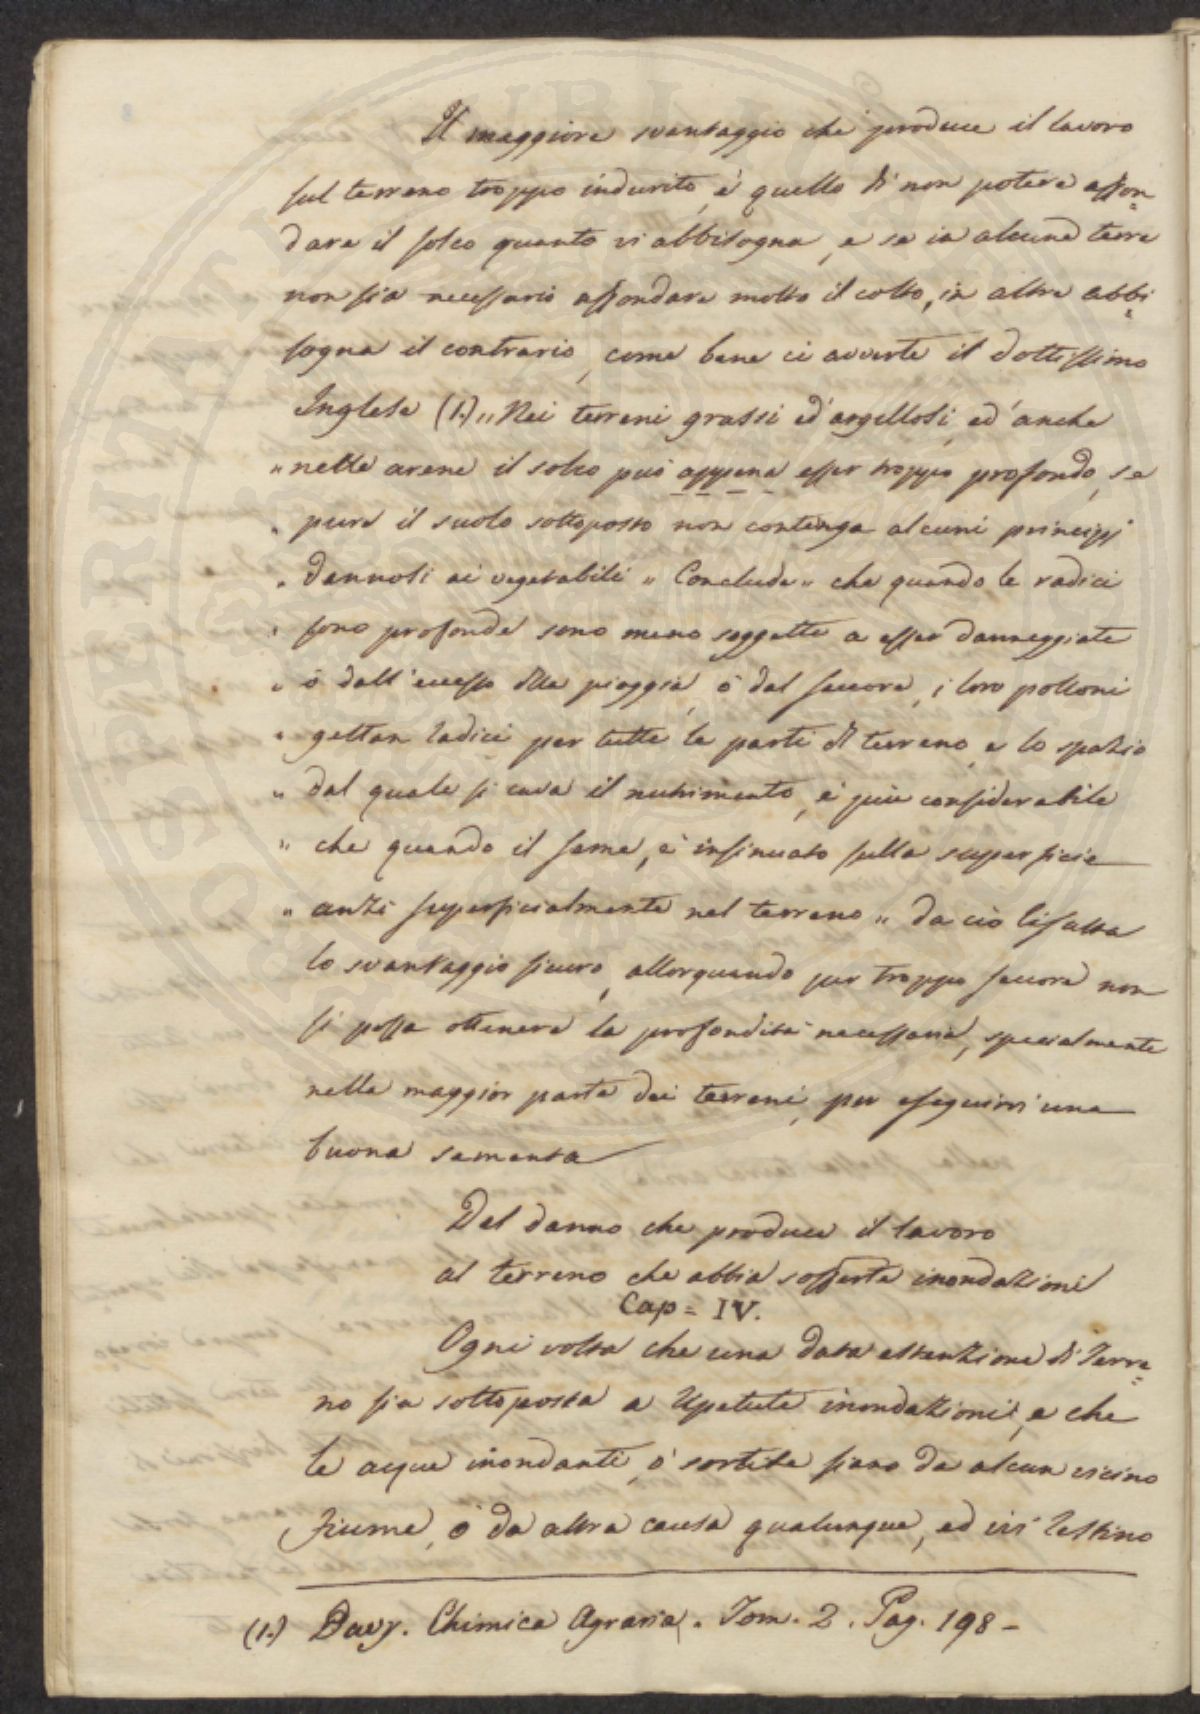 Il maggiore svantaggio che produce il lavoro
sul terreno troppo indurito, è quello di non potere affon=
dare il solco quanto vi abbisogna, e se in alcune terre
non sia necessario affondare molto il colto, in altre abbi=
sogna il contrario, come bene ci avverte il dottissimo
Inglese (1.) „ Nei terreni grassi ed argillosi, ed anche
„ nelle arene il solco può appena esser troppo profondo, se
„ pure il suolo sottoposto non contenga alcuni principj
„ dannosi ai vegetabili „ Conclude „ che quando le radici
„ sono profonde sono meno soggette a esser danneggiate
„ ò dall'eccesso della pioggia, ò dal seccore, i loro polloni
„ gettan radici per tutte le parti di terreno, e lo spazio
„ dal quale si cava il nutrimento, è più considerabile
„ che quando il seme, è insinuato sulla superficie
„ anzi superficialmente nel terreno „ da ciò risulta
lo svantaggio sicuro, allorquando per troppo seccore non
si possa ottenere la profondità necessaria, specialmente
nella maggior parte dei terreni, per eseguirvi una
buona sementa
Del danno che produce il lavoro
al terreno che abbia sofferte inondazioni
Cap = IV.
Ogni volta che una data estenzione di Terre=
no sia sottoposta a ripetute inondazioni, e che
le acque inondanti, ò sortite siano da alcun vicino
fiume, ò da altra causa qualunque, ed ivi restino
(1.) Davy. Chimica Agraria. Tom. 2. Pag. 198 -